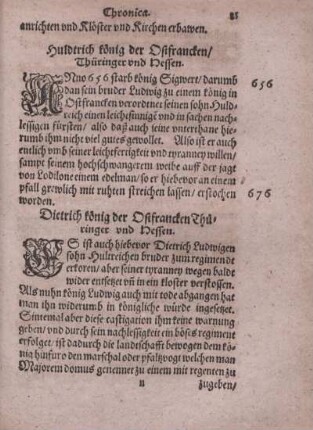 Chronica. 21
anrichten vnd Klöster vnd Kirchen erbawen.
Huldrich könig der Ostfrancken/
Thüringer vnd Hessen.
ANno 656 starb könig Sigwert/ darumb 656
dan sein bruder Ludwig zu einem könig in
Ostfrancken verordnet seinen sohn Huld-
reich einen leichtsinnigē vnd in sachen nach-
lessigen fürsten/ also daß auch seine vnterthane hie-
rumb ihm nicht viel gutes gewollet. Also ist er auch
entlich vmb seiner leichtfertigkeit vnd tyranney willen/
sampt seinem hochschwangerem weibe auff der jagt
von Lodilone einem edelman/ so er hiebevor an einem
pfall grewlich mit ruhten streichen lassen/ erstochen 676
worden.
Dietrich könig der Ostfrancken Thü-
ringer vnd Hessen.
ES ist auch hiebevor Dietrich Ludwigen
sohn Hulreichen bruder zum regimende
erkoren/ aber seiner tyranney wegen balde
wider entsetzet vñ in ein kloster verstossen.
Als nuhn könig Ludwig auch mit tode abgangen hat
man ihn widerumb in königliche würde ingesetzet.
Sintemal aber diese castigation ihm keine warnung
geben/ vnd durch sein nachlessigkeit ein böses regiment
erfolget/ ist dadurch die landschafft bewogen dem kö-
nig hinfuro den marschal oder pfaltzvogt welchen man
Majorem domus gennenet zu einem mit regenten zu
u zugeben/